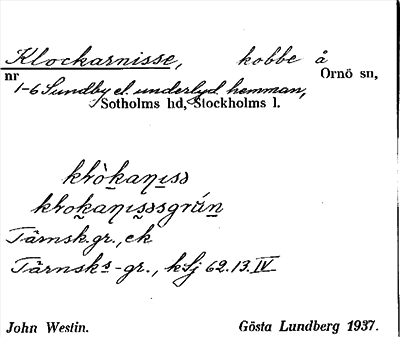 Klockarnisse, kobbe å
nr Ornö sn,
1-6 Sundby el. underlyd. hemman,
Sotholms hd, Stockholms l.
Tärnsk.gr., ek
Tärnsks-gr., kSj 62.13.IV
John Westin. Gösta Lundberg 1937.